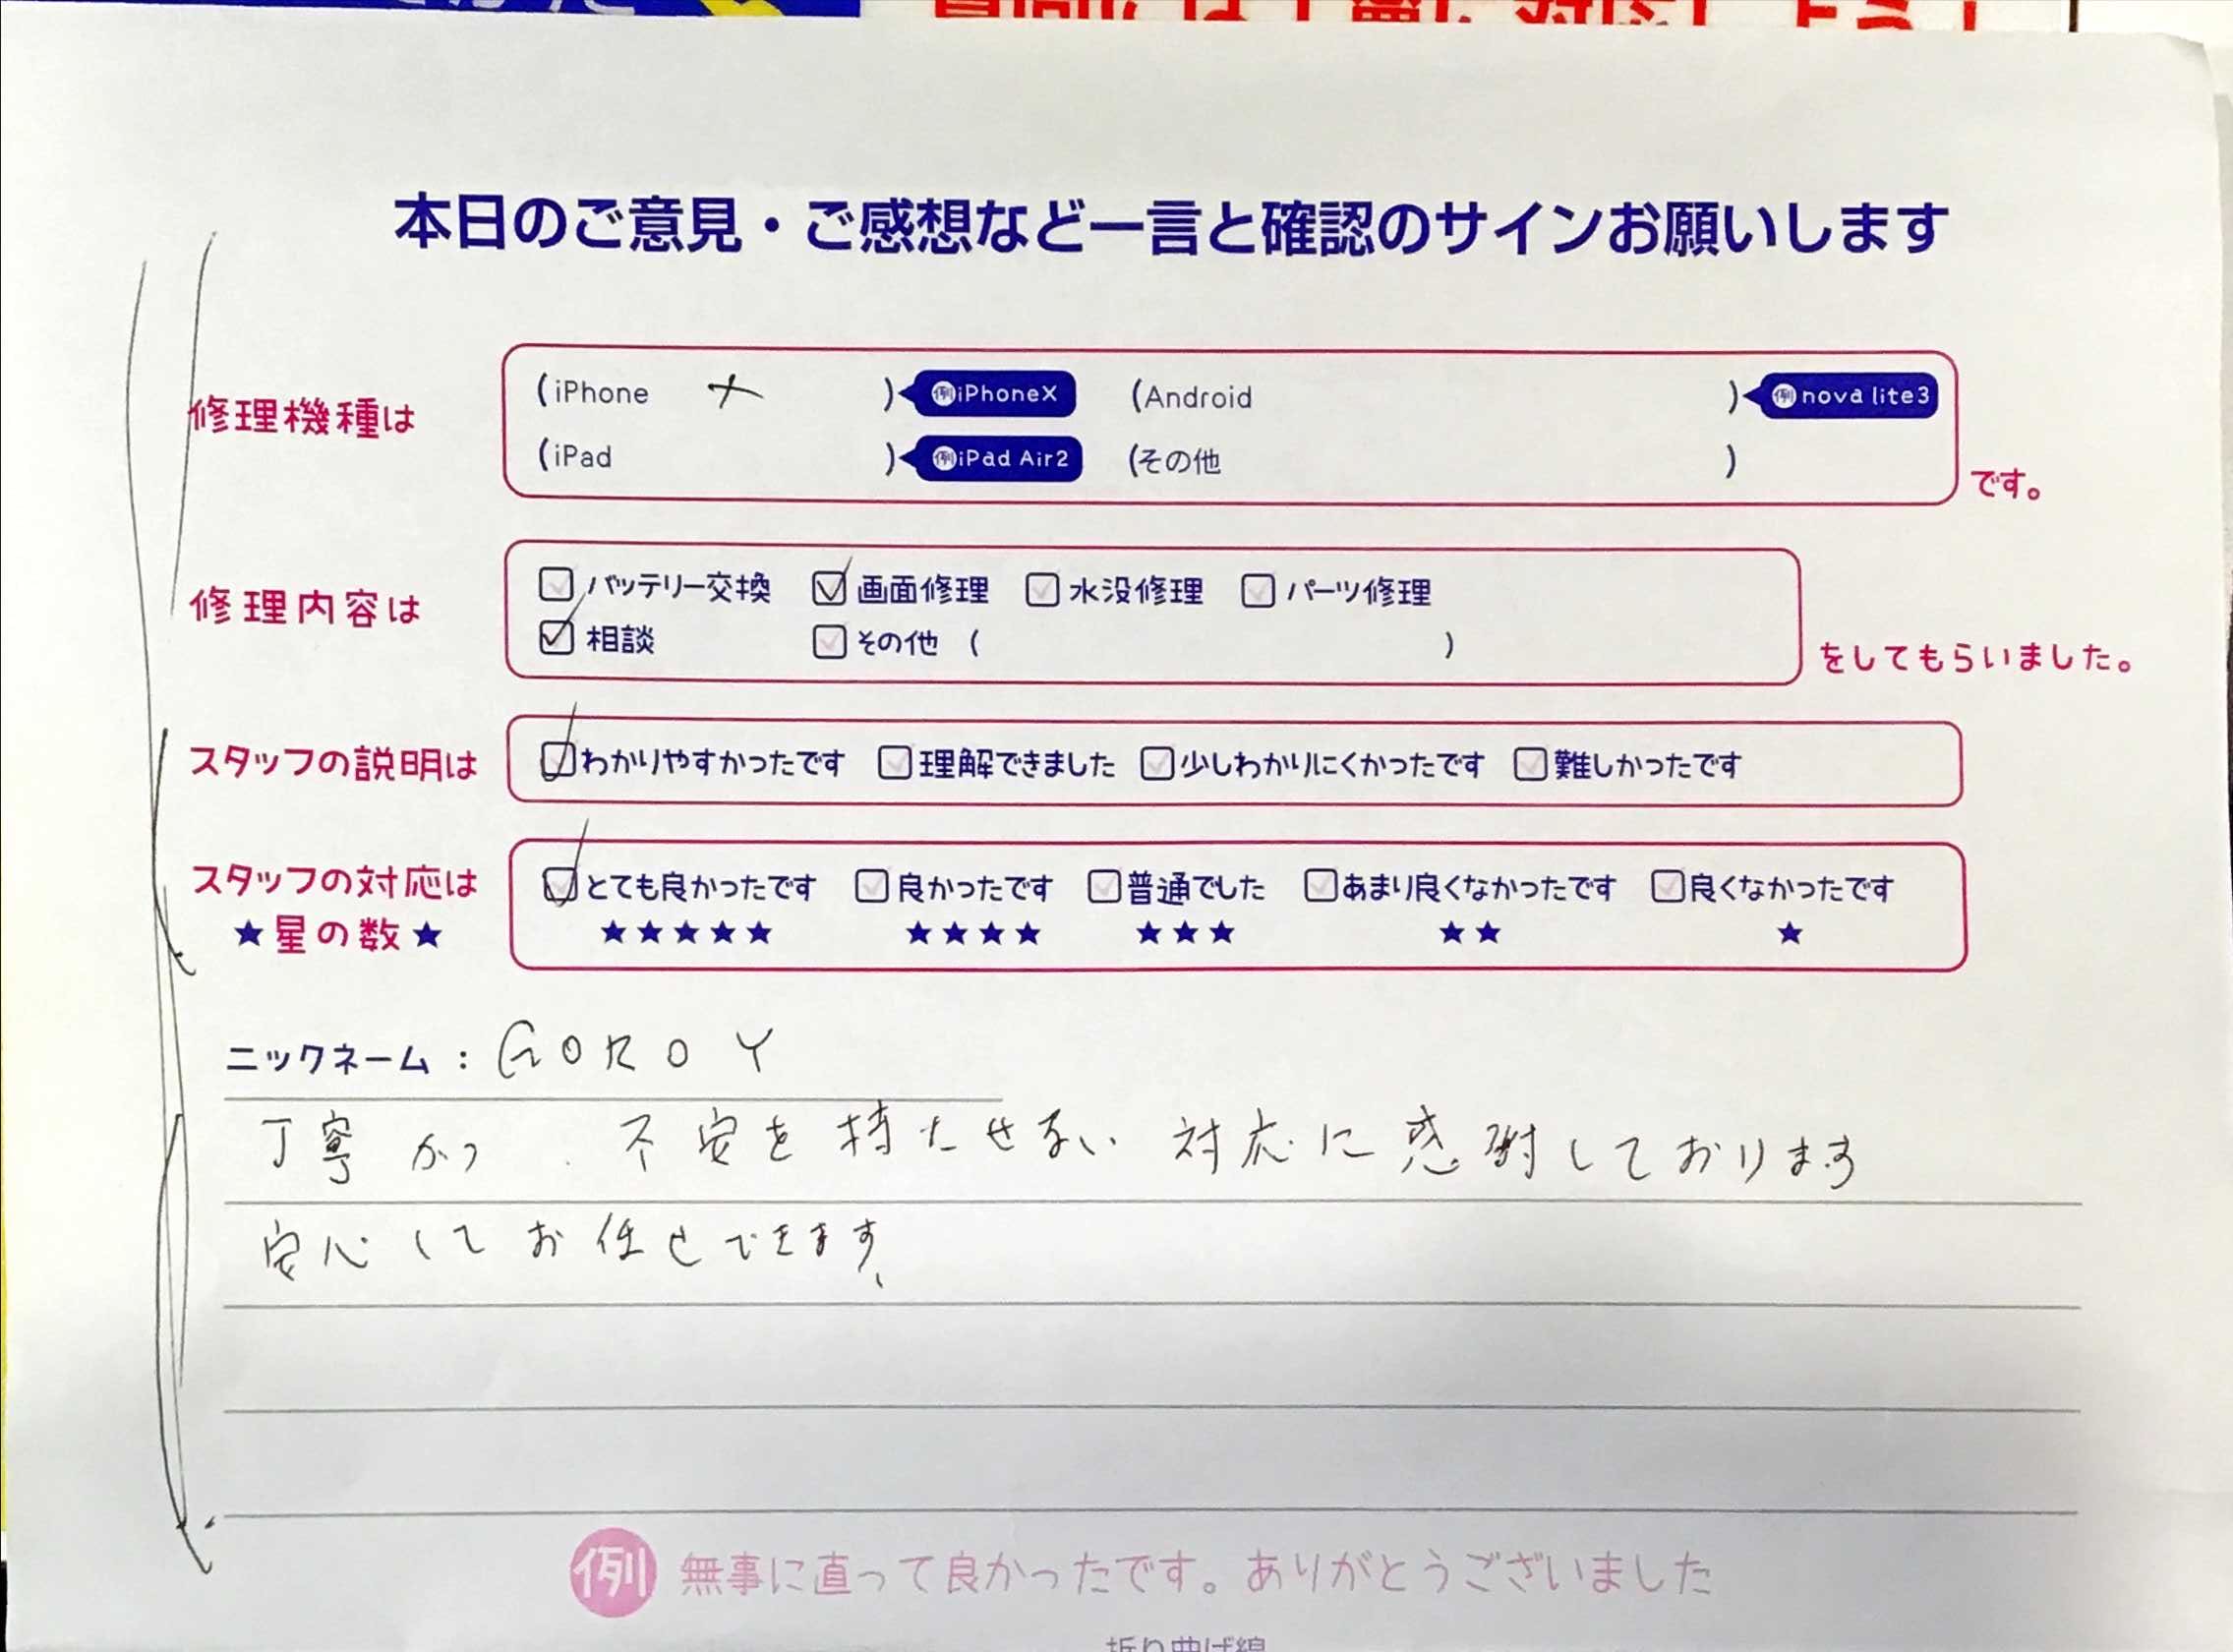 本日のご意見・ご感想など一言と確認のサインお願いします
修理機種は
(iPhone X ) 例iPhoneX (Android ) 例nova lite3
(iPad ) 例iPad Air2 (その他 )
です。
修理内容は
バッテリー交換 画面修理 水没修理 パーツ修理
相談 その他 ( )
をしてもらいました。
スタッフの説明は
わかりやすかったです 理解できました 少しわかりにくかったです 難しかったです
スタッフの対応は
★星の数★
とても良かったです 良かったです 普通でした あまり良くなかったです 良くなかったです
★★★★★ ★★★★ ★★★ ★★ ★
ニックネーム : GOROY
丁寧かつ、不安を持たせない対応に感謝しております
安心してお任せできます、
例 無事に直って良かったです。ありがとうございました
折り曲げ線